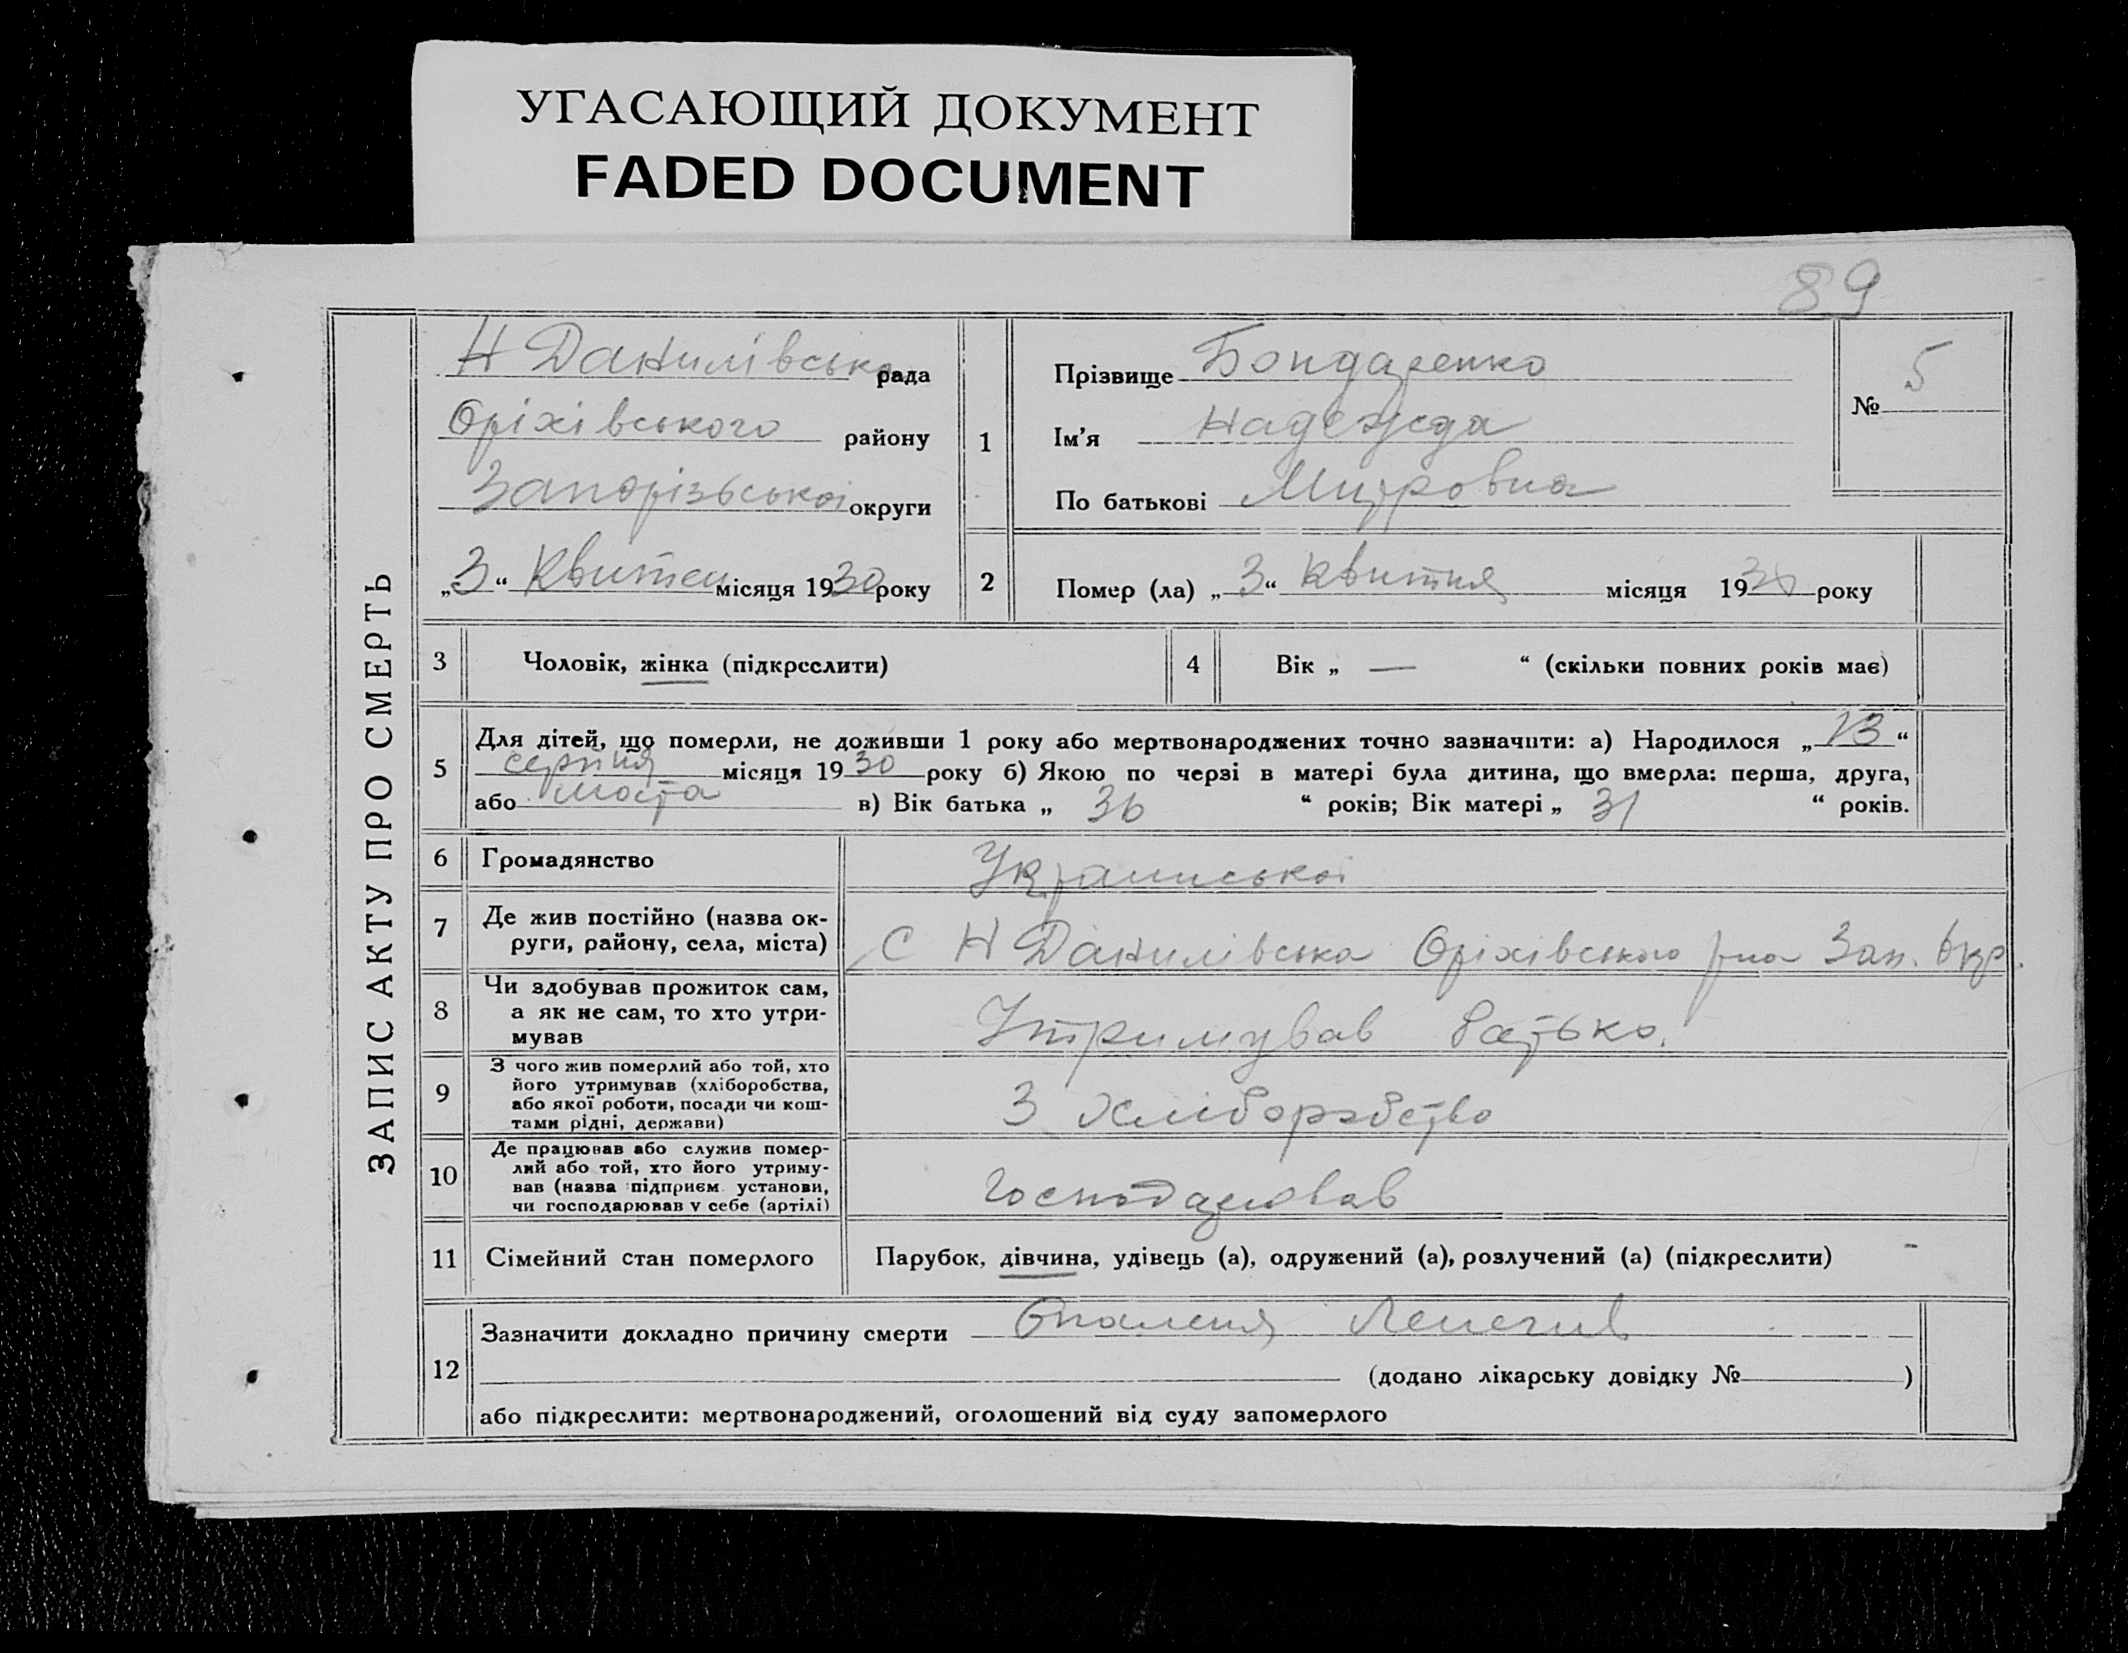 УГАСАЮЩИЙ ДОКУМЕНТ
FADED DOCUMENT
89
ЗАПИС АКТУ ПРО СМЕРТЬ
Н Данилівська рада
Оріхівського району
Запорізької округи
„3“ Квитня місяця 1930 року
1
Прізвище Бондаренко
Ім'я Надежда
По батькові
№ 5
2 Помер (ла) „3“ Квитня місяця 1930 року
3 Чоловік, жінка (підкреслити)
4 Вік „ — “ (скільки повних років має)
5 Для дітей, що померли, не доживши 1 року або мертвонароджених точно зазначити: а) Народилося „13“
серпня місяця 1930 року б) Якою по черзі в матері була дитина, що вмерла: перша, друга,
або шоста в) Вік батька „ 36 “ років; Вік матері „ 31 “ років.
6 Громадянство
7 Де жив постійно (назва ок-
руги, району, села, міста)
С Н Данилівська Оріхівського рна Зап. Окр.
8 Чи здобував прожиток сам,
а як не сам, то хто утри-
мував
Утримував батько.
9 З чого жив померлий або той, хто
його утримував (хліборобства,
або якої роботи, посади чи кош-
тами рідні, держави)
З хліборобство
10 Де працював або служив помер-
лий або той, хто його утриму-
вав (назва підприєм. установи,
чи господарював у себе (артілі)
Господарював
11 Сімейний стан померлого
Парубок, дівчина, удівець (а), одружений (а), розлучений (а) (підкреслити) -
12 Зазначити докладно причину смерти
(додано лікарську довідку № )
або підкреслити: мертвонароджений, оголошений від суду запомерлого